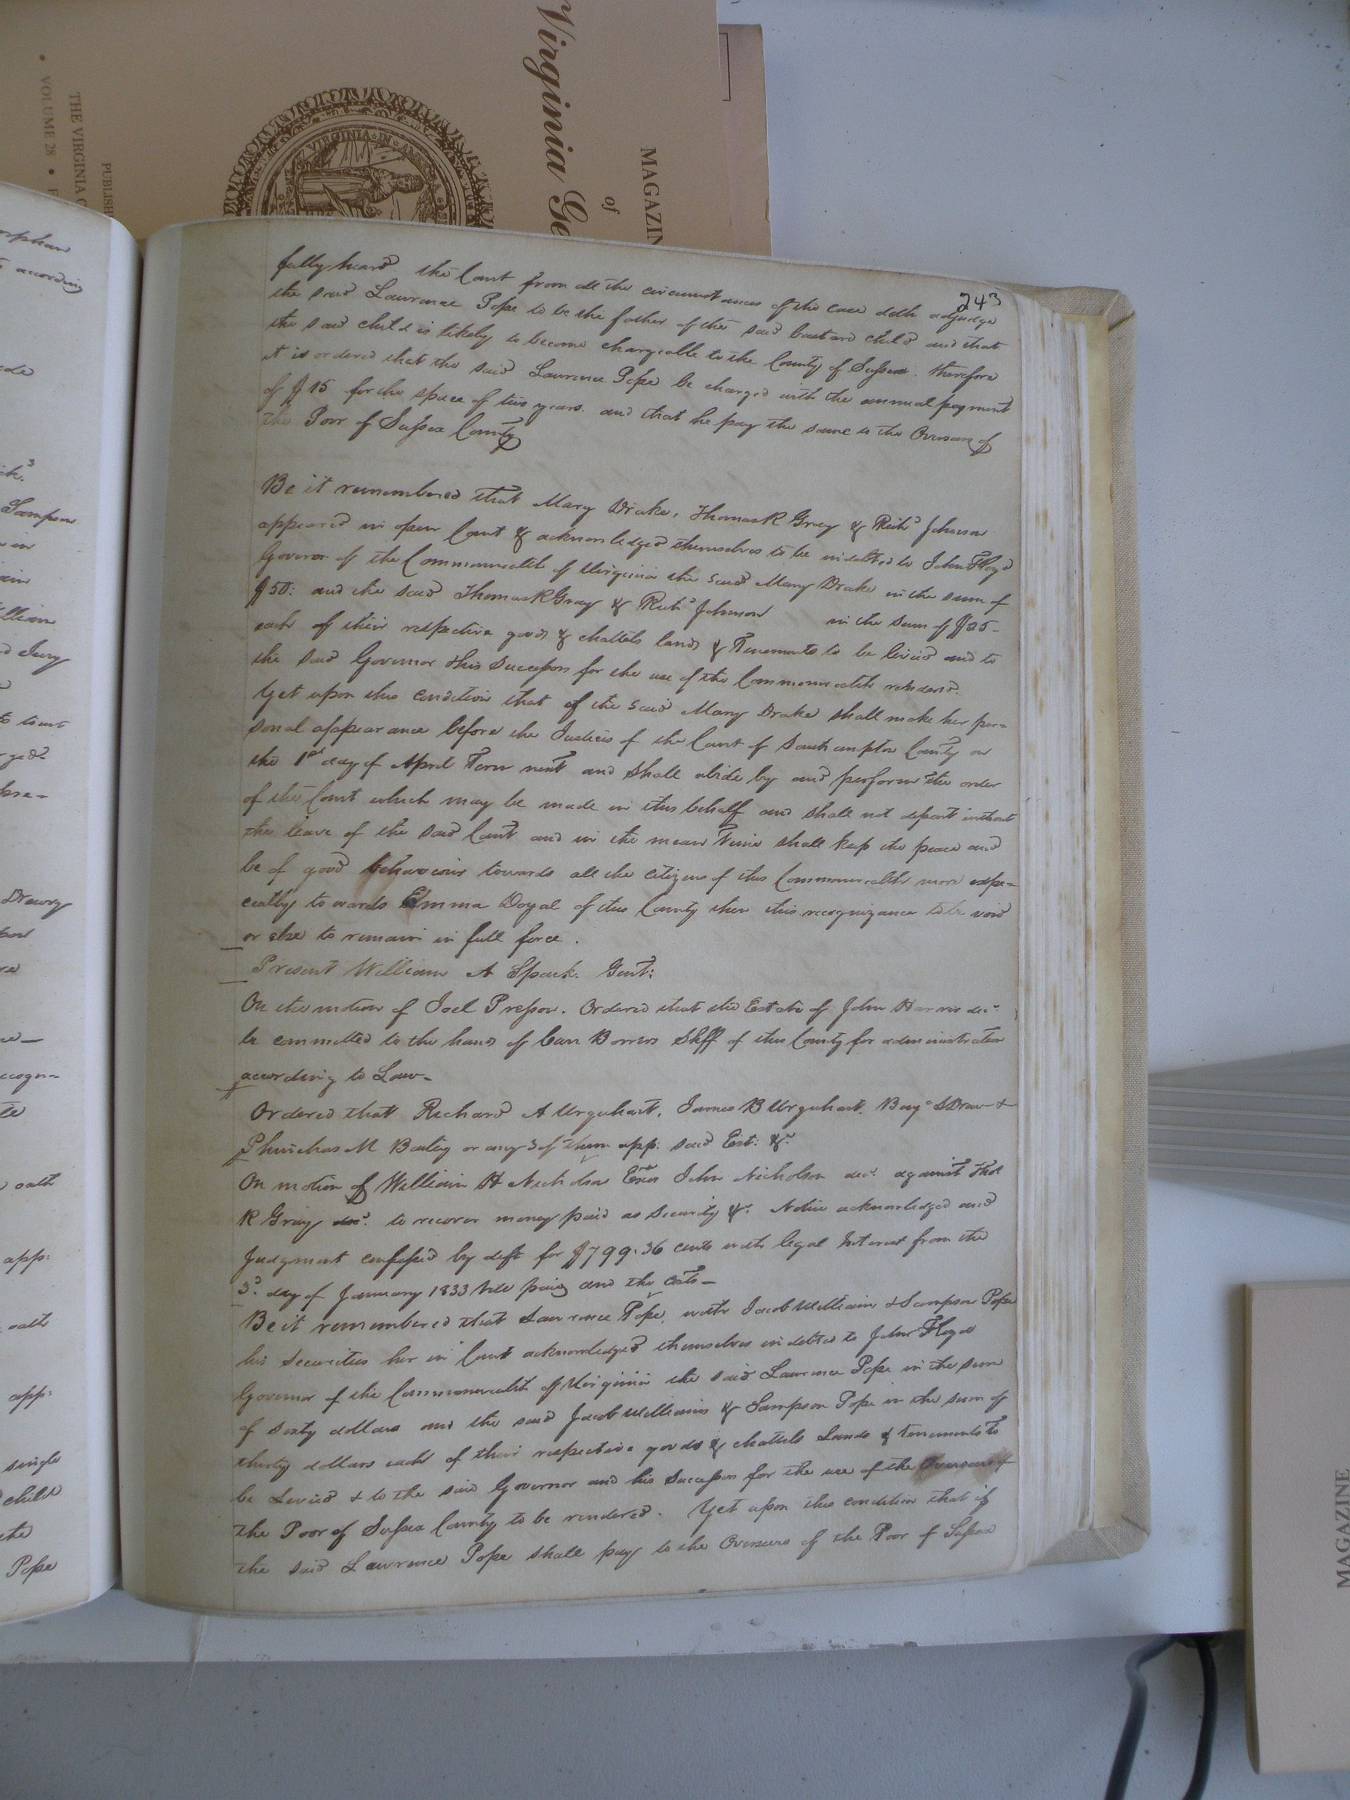 Virginia Ge
MAGAZIN
of
VIRGINIA
PUBLISH
THE VIRGINIA
• VOLUME 28 •
243
fully heard the Court from all the circumstances of the case doth adjudge
the said Lawrence Pope to be the father of the said bastard child and that
the said child is likely to become chargeable to the County of Sussex. therefore
it is ordered that the said Lawrence Pope be charged with the annual payment
of $15 for the space of two years. and that he pay the same to the Overseers of
the Poor of Sussex County
Be it remembered that Mary Drake, Thomas R Gray & Richd Johnson
appeared in open Court & acknowledged themselves to be indebted to John Floyd
Govenor of the Commonwealth of Virginia the said Mary Drake in the sum of
$50: and the said Thomas R Gray & Richd Johnson in the sum of $25-
each of their respective goods & chattels lands & Tenements to be levied and to
the said Governor & his Successors for the use of the Commonwealth rendered.
Yet upon this condition that if the said Mary Drake shall make her per=
sonal appearance before the Justices of the Court of Southampton County on
the 1st day of April Term next and shall abide by and perform the order
of the Court which may be made in this behalf and shall not depart without
the leave of the said Court and in the mean Time shall keep the peace and
be of good behaviour towards all the citizens of this Commonwealth more espe-
cially towards Emma Doyal of this County then this recognizance to be void
or else to remain in full force.
Present William A Spark. Gent:
On the motion of Joel Pressor. Ordered that the Estate of John Harris decd
be committed to the hands of Carr Bowers Shff of this County for administration
according to Law-
Ordered that Richard A Urquhart, James B Urquhart, Benj. S Drew &
Phinehas M Bailey or any 3 of them app: said Est: &c
On motion of William H Nicholson Exor John Nicholson decd against Thos
R Gray to recover money paid as security &c. Notice acknowledged and
Judgment confessed by deft for $799.36 cents with legal Interest from the
3d. day of January 1833 till paid and the costs-
Be it remembered that Lawrence Pope, with Jacob William & Sampson Pope
his securities her in Court acknowledged themselves indebted to John Floyd
Governor of the Commonwealth of Virginia the said Lawrence Pope in the sum
of sixty dollars and the said Jacob Williams & Sampson Pope in the sum of
thirty dollars each of their respective goods & chattels Lands & tenements to
be Levied & to the said Governor and his Successors for the use of the Overseers of
the Poor of Sussex County to be rendered. Yet upon this condition that if
the said Lawrence Pope shall pay to the Overseers of the Poor of Sussex
according
Sampson
Drewry
oath
app:
oath
app:
single
child
Pope
MAGAZINE